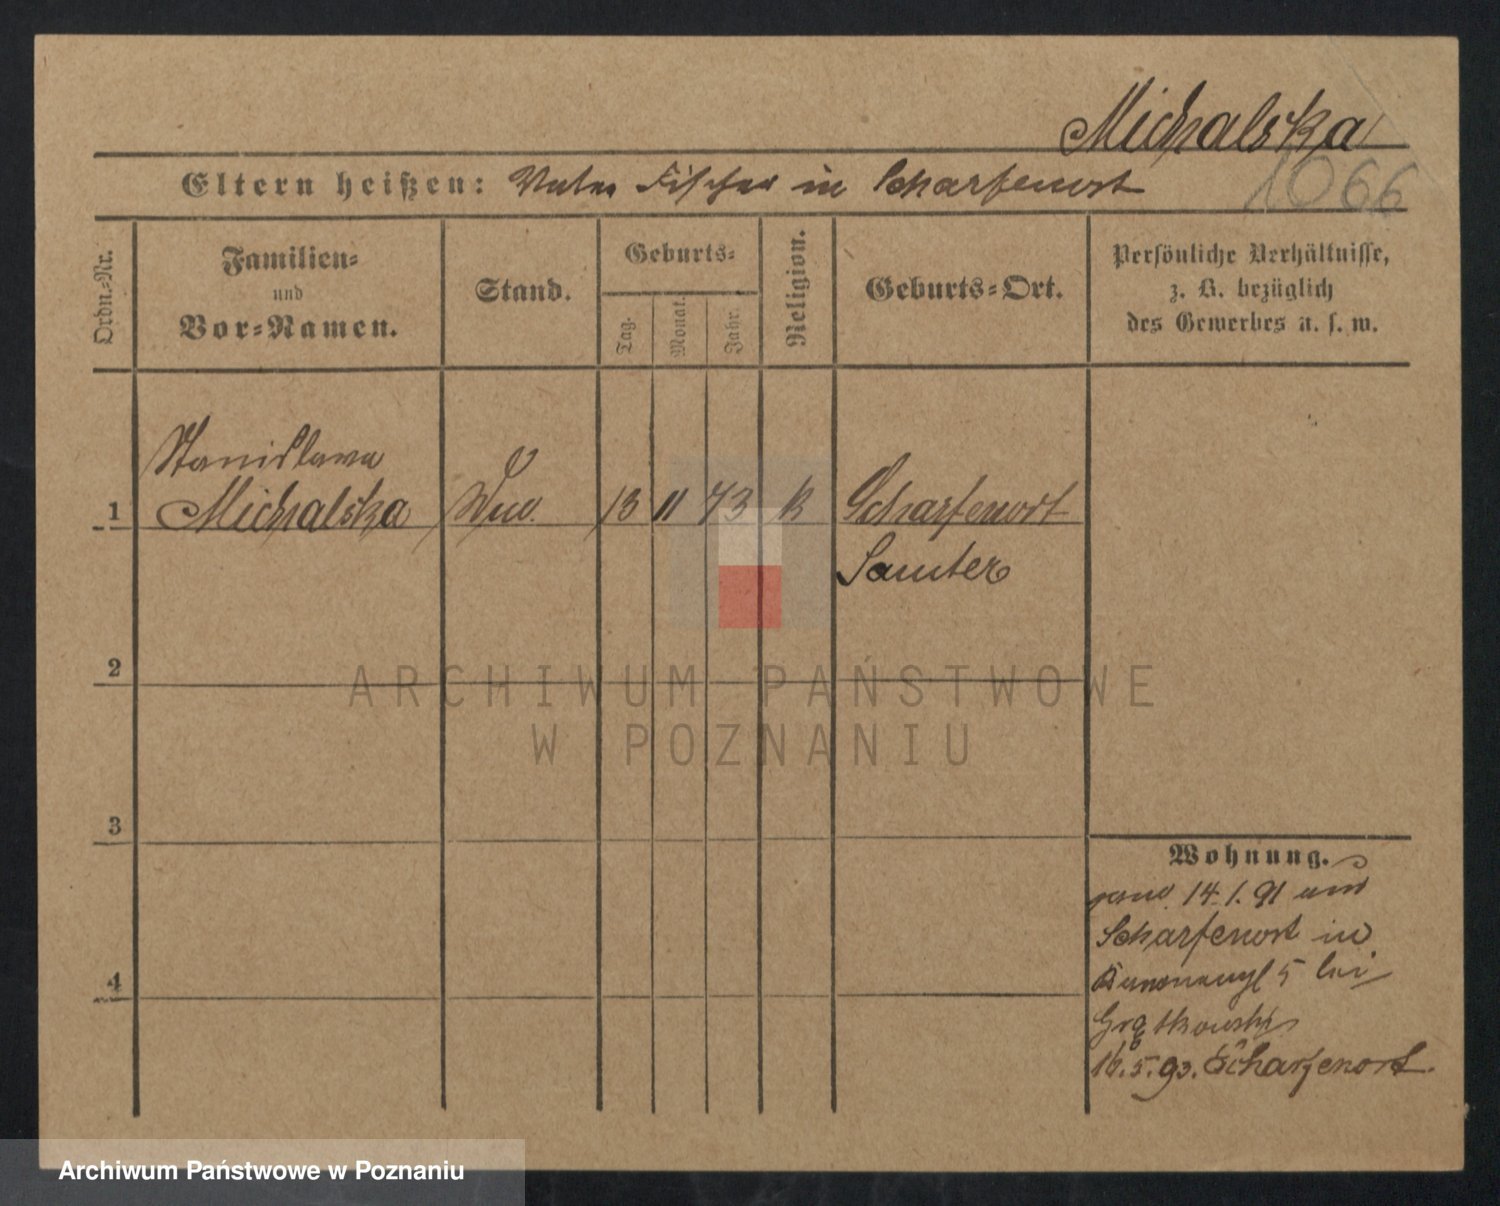 Michalska
1066
Eltern heißen: Vater Fischer in Scharfenort
Ordn.-Nr.
Familien-
und
Vor-Namen.
Stand.
Geburts-
Tag.
Monat.
Jahr.
Religion.
Geburts-Ort.
Persönliche Verhältnisse,
z. B. bezüglich
des Gewerbes u. s. w.
Stanislawa
1 Michalska 13 11 73 k Scharfenort
Samter
2
3
4
Wohnung.
14.1.91
Scharfenort in
5 bei
Grątkowski
16.5.93. Scharfenort.
ARCHIWUM PAŃSTWOWE
W POZNANIU
Archiwum Państwowe w Poznaniu